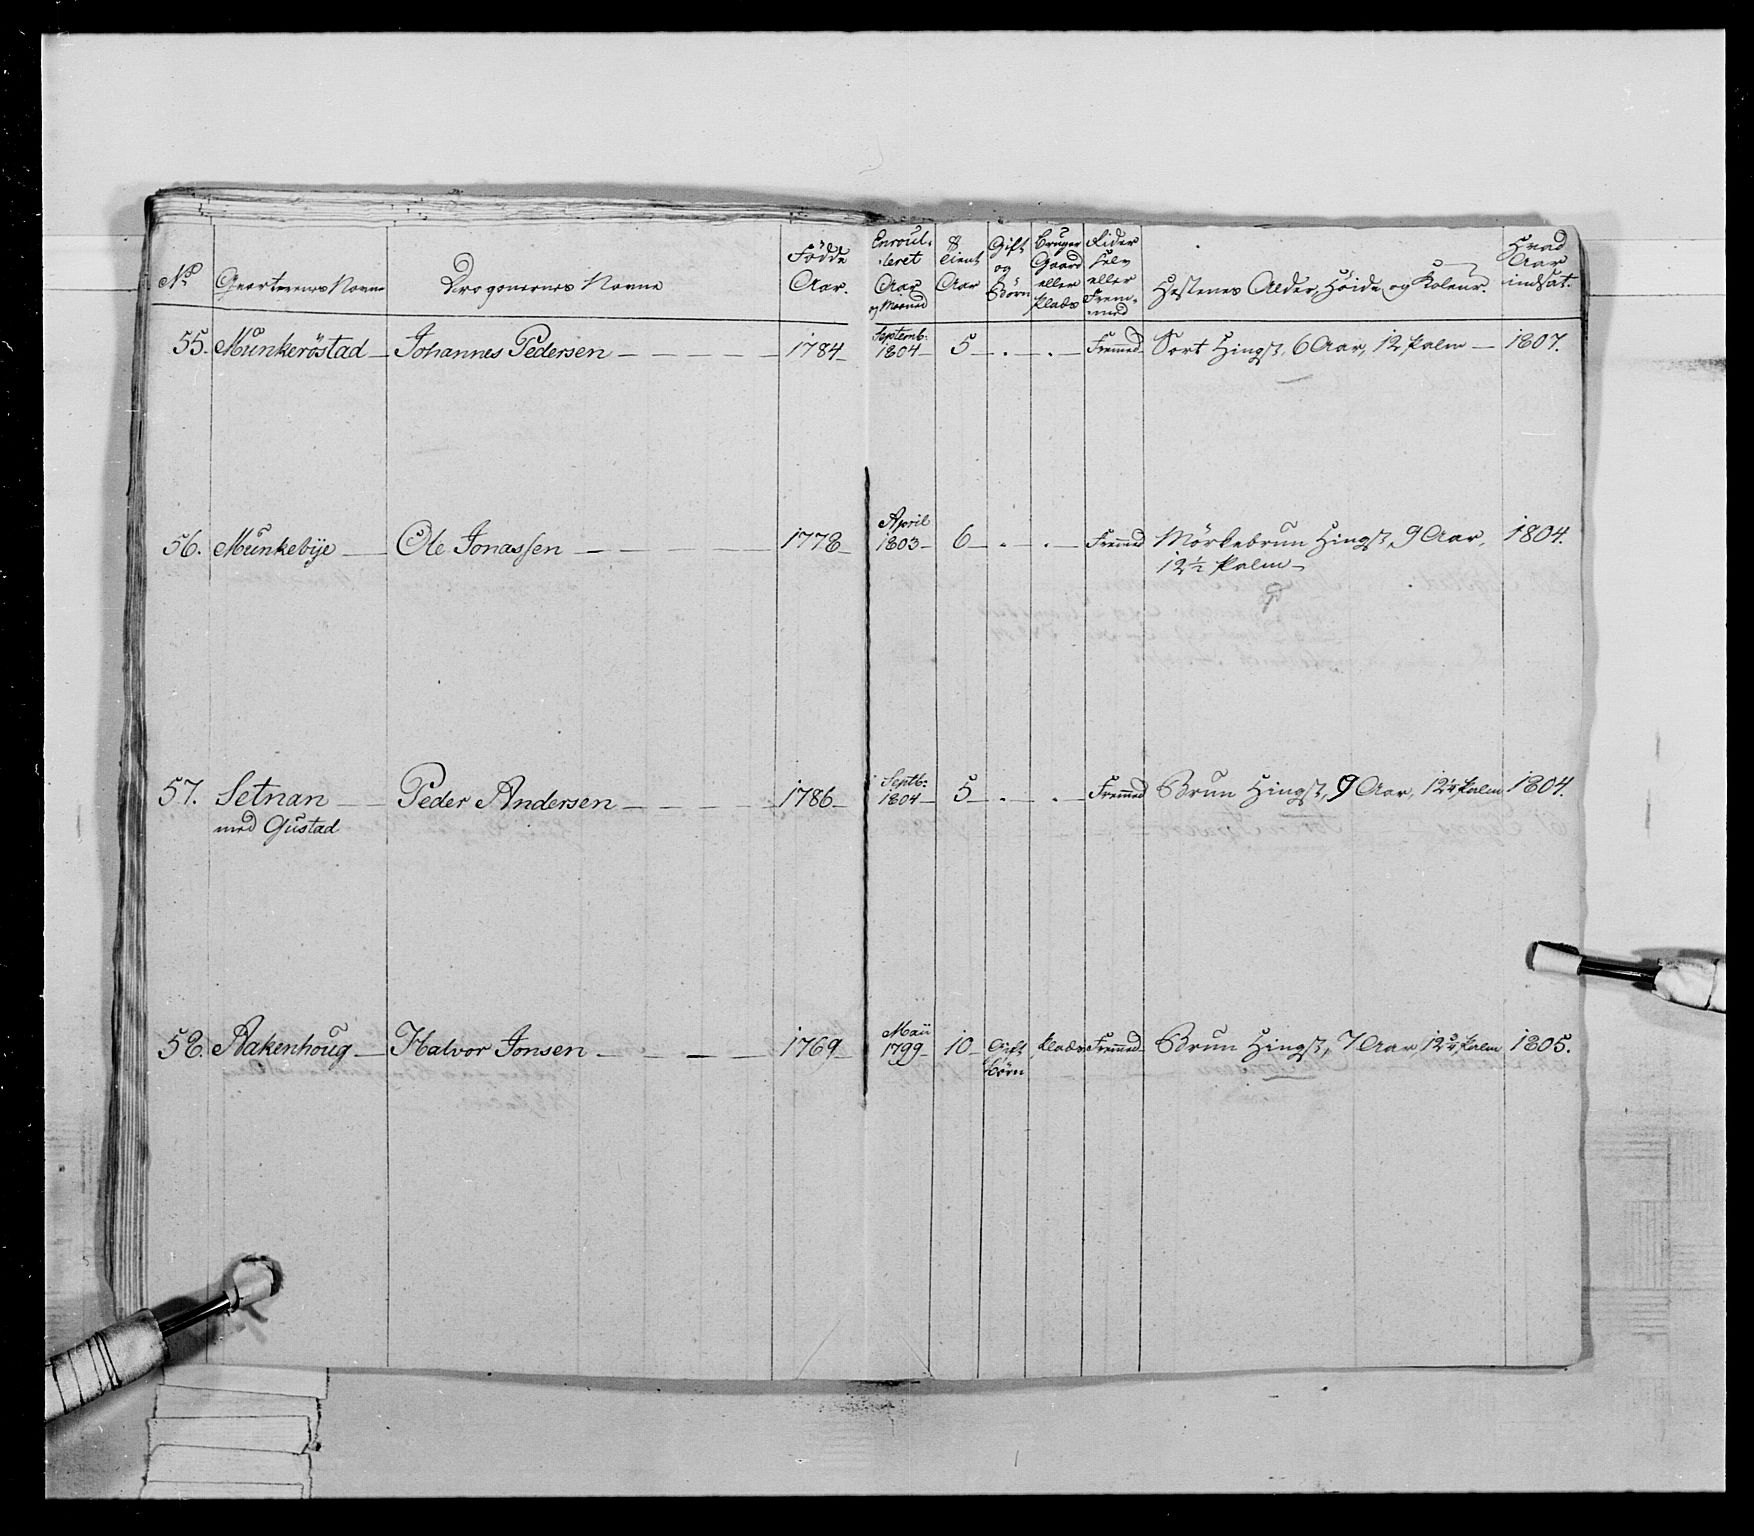 No Qvarterenes Navne Dragonernes Navne Födde Aar. Enroulleret Aar og Maaned Tient Aar Gift og Börn Bruger Gaard eller Plads Rider selv eller Fremmed Hestenes Alder, Höide og Koleur Hvad Aar indsat.
55. Munkeröstad Johannes Pedersen 1784 Septemb: 1804 5 Fremed Sort Hingst, 6 Aar, 12 Palm 1807.
56. Munkebÿe Ole Jonassen 1778 April 1803 6 Fremed Mörkebrun Hingst, 9 Aar, 1804.
12½ Palm
57. Setnan Peder Andersen 1786 Septb: 1804 5 Fremed Brun Hingst, 9 Aar, 12¼ Palm 1804.
med Gustad
58. Aakenhoug Halvor Jonsen 1769 Maii 1799 10 Gift Börn Plads Fremed Brun Hingst, 7 Aar 12¾ Palm 1805.